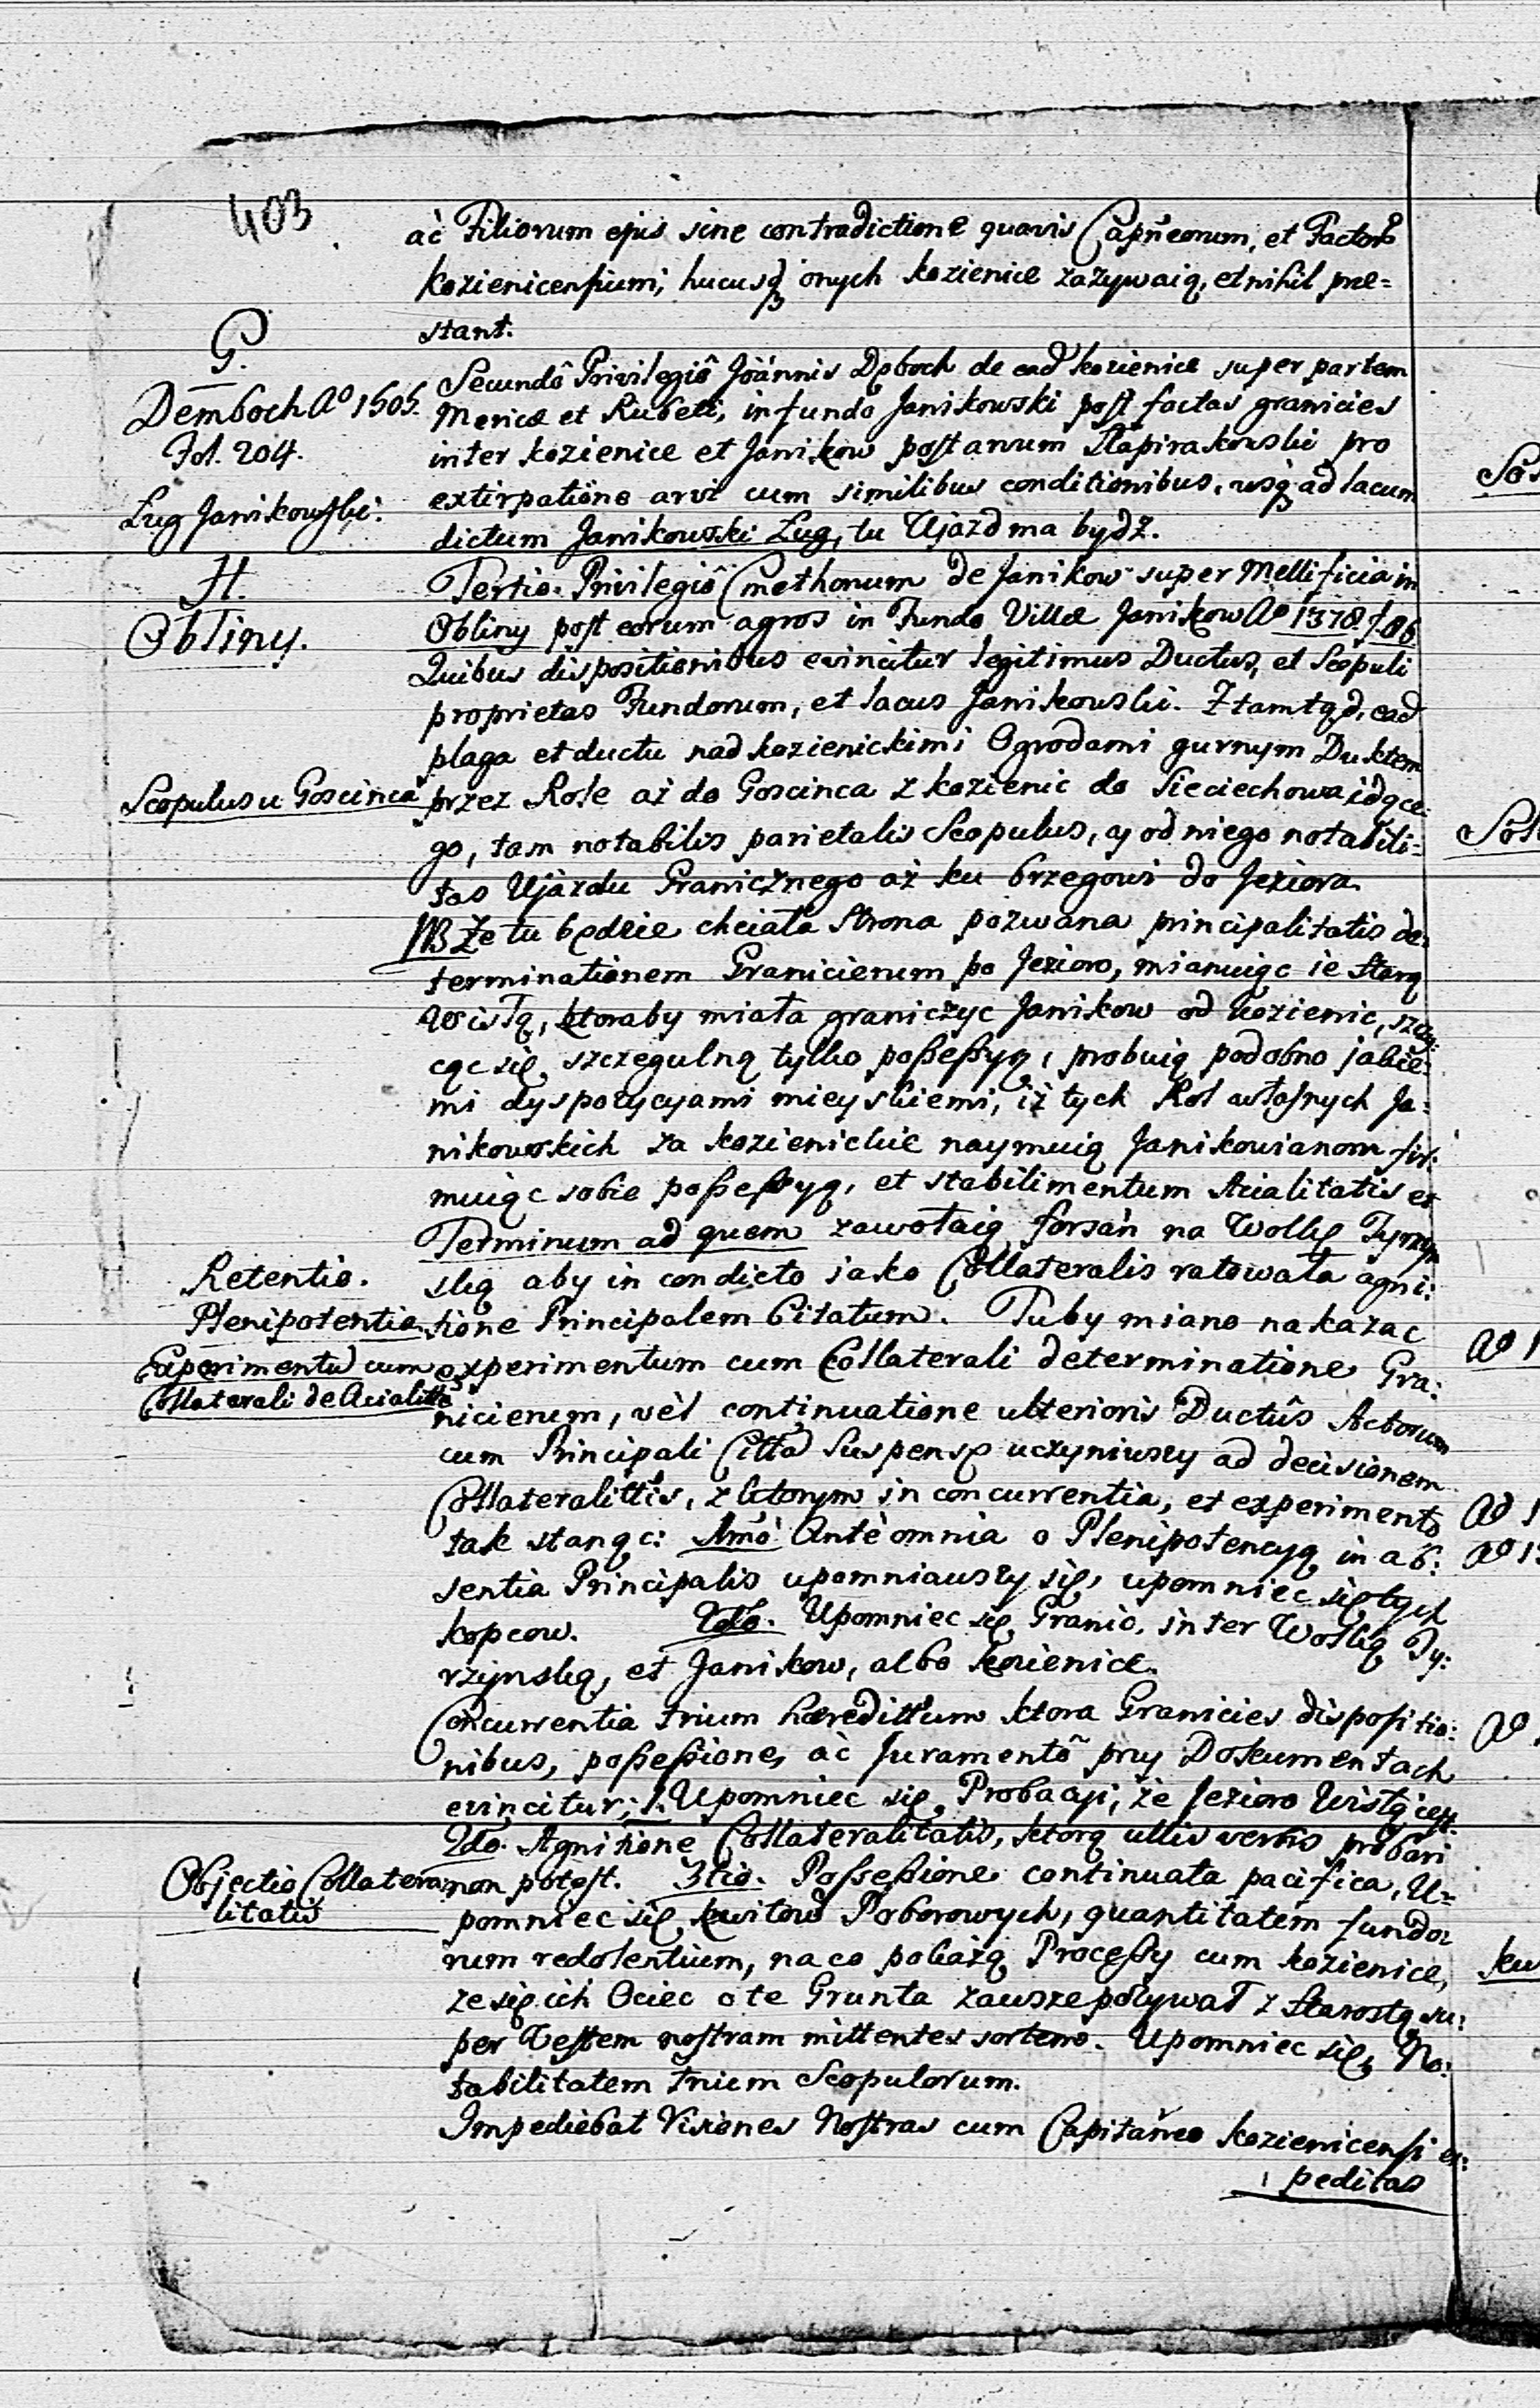 403
ac Filiorum ejus sine contradictione quavis Capñeorum, et Factorũ
Kozienicensium, hucusq onych Kozienice zazywaią, et nihil præ=
stant.
G.
Demboch Aº 1505.
Fol. 204.
Ług Janikowski.
Secundô Privilegiô Joannis Dęboch de ead Kozienice super partem
Mericæ et Rubeti, in fundo Janikowski post factas granicies
inter Kozienice et Janikow post arvum Slapirakowski pro
extirpatione arvi cum similibus conditionibus, usq ad lacum
dictum Janikowski Ług, tu Ujazd ma bydź.
H.
Obliny.
Tertio. Privilegiô Cmethonum de Janikow super Mellificia in
Obliny post eorum agros in Fundo Villæ Janikow Aº 1578 f. 86
Quibus dispositionibus evincitur legitimus Ductus, et Scopuli
proprietas Fundorum, et lacus Janikowski. Ztamtąd, ead
plaga et ductu nad Kozienickimi Ogrodami gurnym Duktem
Scopulus u Goscinca
przez Role aż do Goscinca z Kozienic do Sieciechowa idące:
go, tam notabilis parietalis Scopulus, a od niego notabili=
tas Ujazdu Granicznego aż ku brzegowi do Jeziora.
NB Że tu będzie chciała Strona pozwana principalitatis de:
terminationem Granicierum po Jezioro, mianuiąc ie Starą
Wisłą, ktoraby miała graniczyc Janikow od Kozienic, szczy:
cąc się szczegulną tylko possessyą, probuią podobno jakie:
mi dyspozycyami mieyskiemi, iż tych Rol własnych Ja:
nikowskich za Kozienickie naymuią Janikowianom fir:
muiąc sobie possessyą, et stabilimentum Acialitatis et
Terminum ad quem zawołaią forsan na Wolkę Tyrzyn
Retentio.
ską aby in condicto iako Collateralis ratowała agni:
Plenipotentia.
tione Principalem Citatum. Tuby miano nakazac
Experimentũ cum
Collaterali de Acialitte
experimentum cum Collaterali determinatione Gra:
nicierum, vel continuatione ulterioris Ductûs Actorum
cum Principali Citto Suspensę uczyniwszy ad decisionem
Collateralittis, z ktorym in concurrentia, et experimento
tak stanąc: Imo Ante omnia o Plenipotencyą in ab:
sentia Principalis upomniawszy się, upomniec się tych
kopcow. 2do. Upomniec się Granic. inter Wolkę Ty:
rzynską, et Janikow, albo Kozienice.
Concurrentia trium hæredittum ktora Granicies dispositio:
nibus, possessione, ac Juramentô przy Dokumentach
evincitur; 1. Upomniec się Probacyi, że Jezioro Wisłą iest.
2do. Agnitione Collateralitatis, ktorą ullis verbis probari
Objectio Collatera
litatis
non potest. 3tio. Possessione continuata pacifica, U=
pomniec się kwitow Poborowych, quantitatem fundo:
rum redolentium, na co pokażą Processy cum Kozienice,
ze się ich Ociec o te Grunta zawsze pozywał z Starostą su:
per Testem nostram mittentes sortem. Upomniec się, No:
tabilitatem trium Scopulorum.
Impediebat Visiones Nostras cum Capitaneo Kozienicensi ex:
peditas